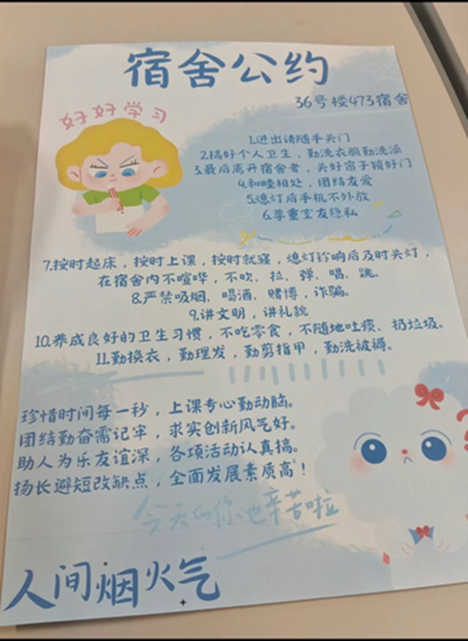 宿舍公约
36号楼473宿舍
好好学习
1.进出请随手关门
2.搞好个人卫生，勤洗衣服勤洗澡
3.最后离开宿舍者，关好窗子锁好门
4.和睦相处，团结友爱
5.熄灯后手机不外放
6.尊重室友隐私
7.按时起床，按时上课，按时就寝，熄灯铃响后及时关灯，
在宿舍内不喧哗，不吹、拉、弹、唱、跳。
8.严禁吸烟、喝酒、赌博，诈骗。
9.讲文明，讲礼貌
10.养成良好的卫生习惯，不吃零食，不随地吐痰、扔垃圾。
11.勤换衣，勤理发，勤剪指甲，勤洗被褥。
珍惜时间每一秒，上课专心勤动脑。
团结勤奋需记牢，求实创新风气好。
助人为乐友谊深，各项活动认真搞。
扬长避短改缺点，全面发展素质高！
今天的你也辛苦啦
人间烟火气